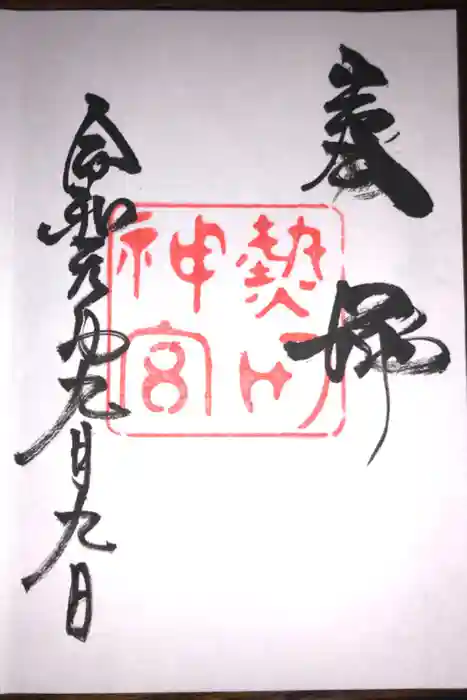 奉拝
熱田
神宮
令和元年九月九日